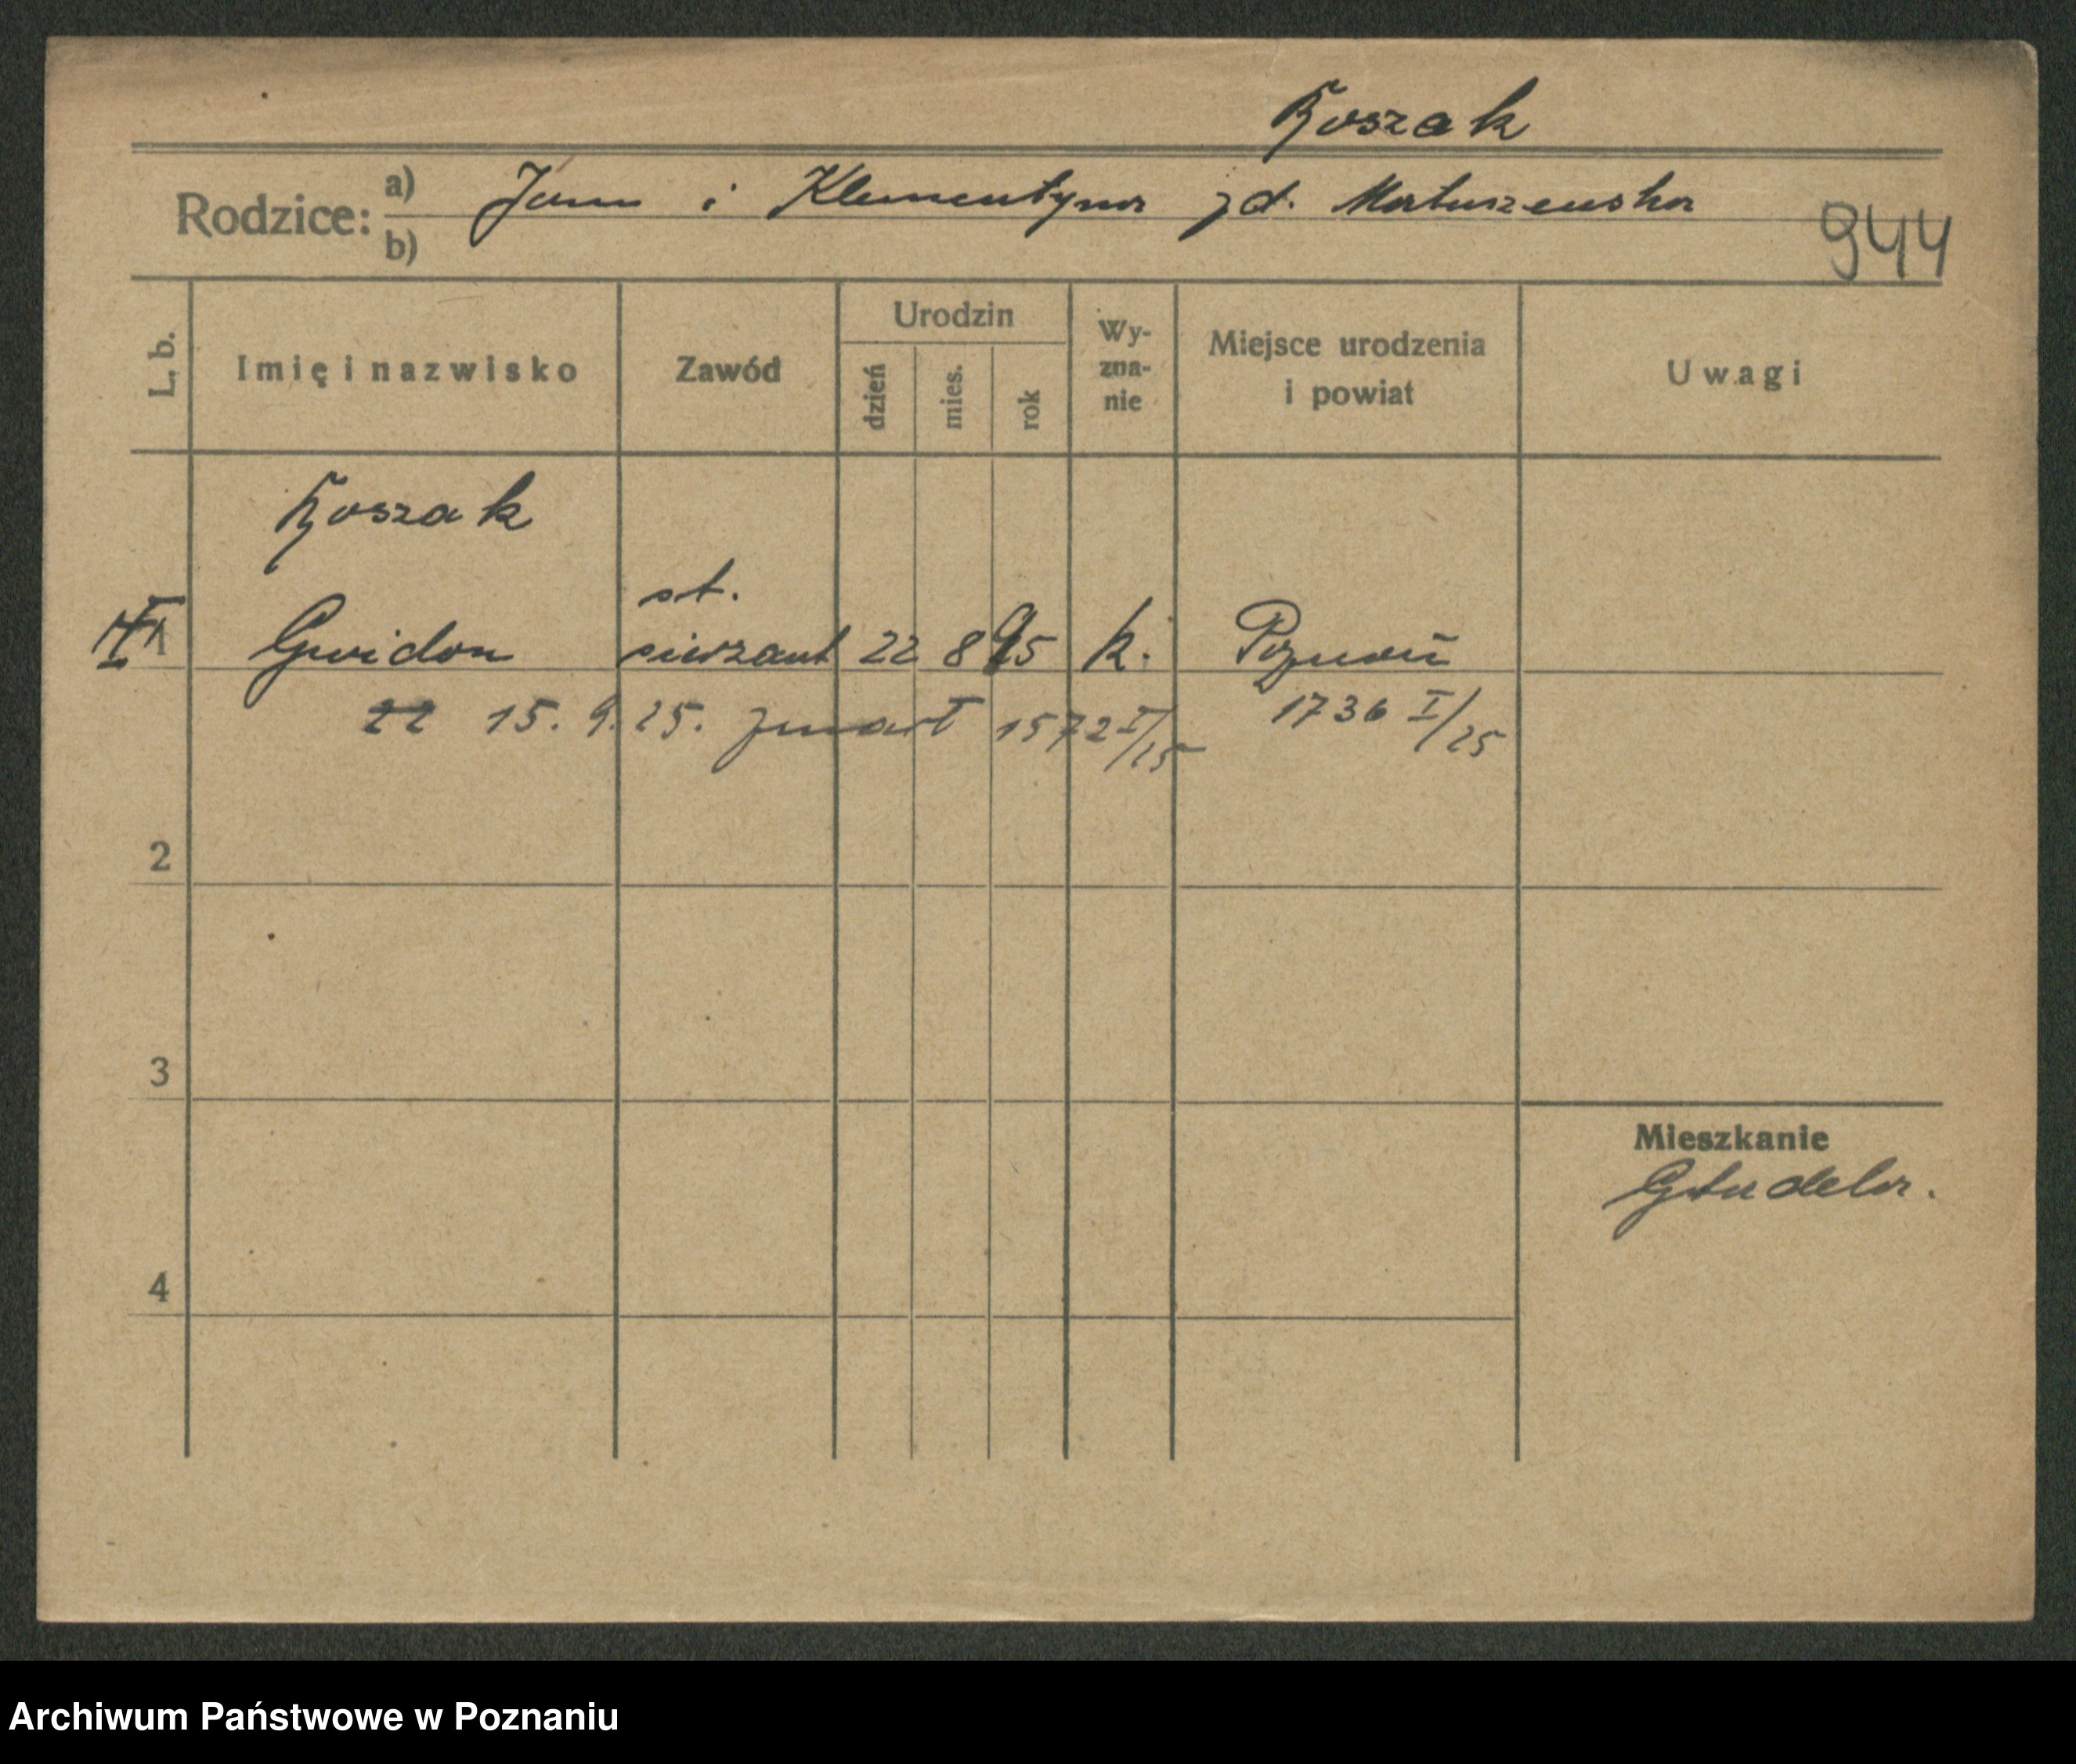 Koszak
Rodzice: a) Jan i Klementyna zd. Matuszewska
b)
944
L. b. Imię i nazwisko Zawód Urodzin dzień mies. rok Wy-zna-nie Miejsce urodzenia i powiat Uwagi
Koszak
st.
1 Gwidon sierżant 22 8 95 k. Poznań
22 15. 9. 25. zmarł 1572 I/25 1736 I/25
2
3
Mieszkanie
Cytadela.
4
Archiwum Państwowe w Poznaniu